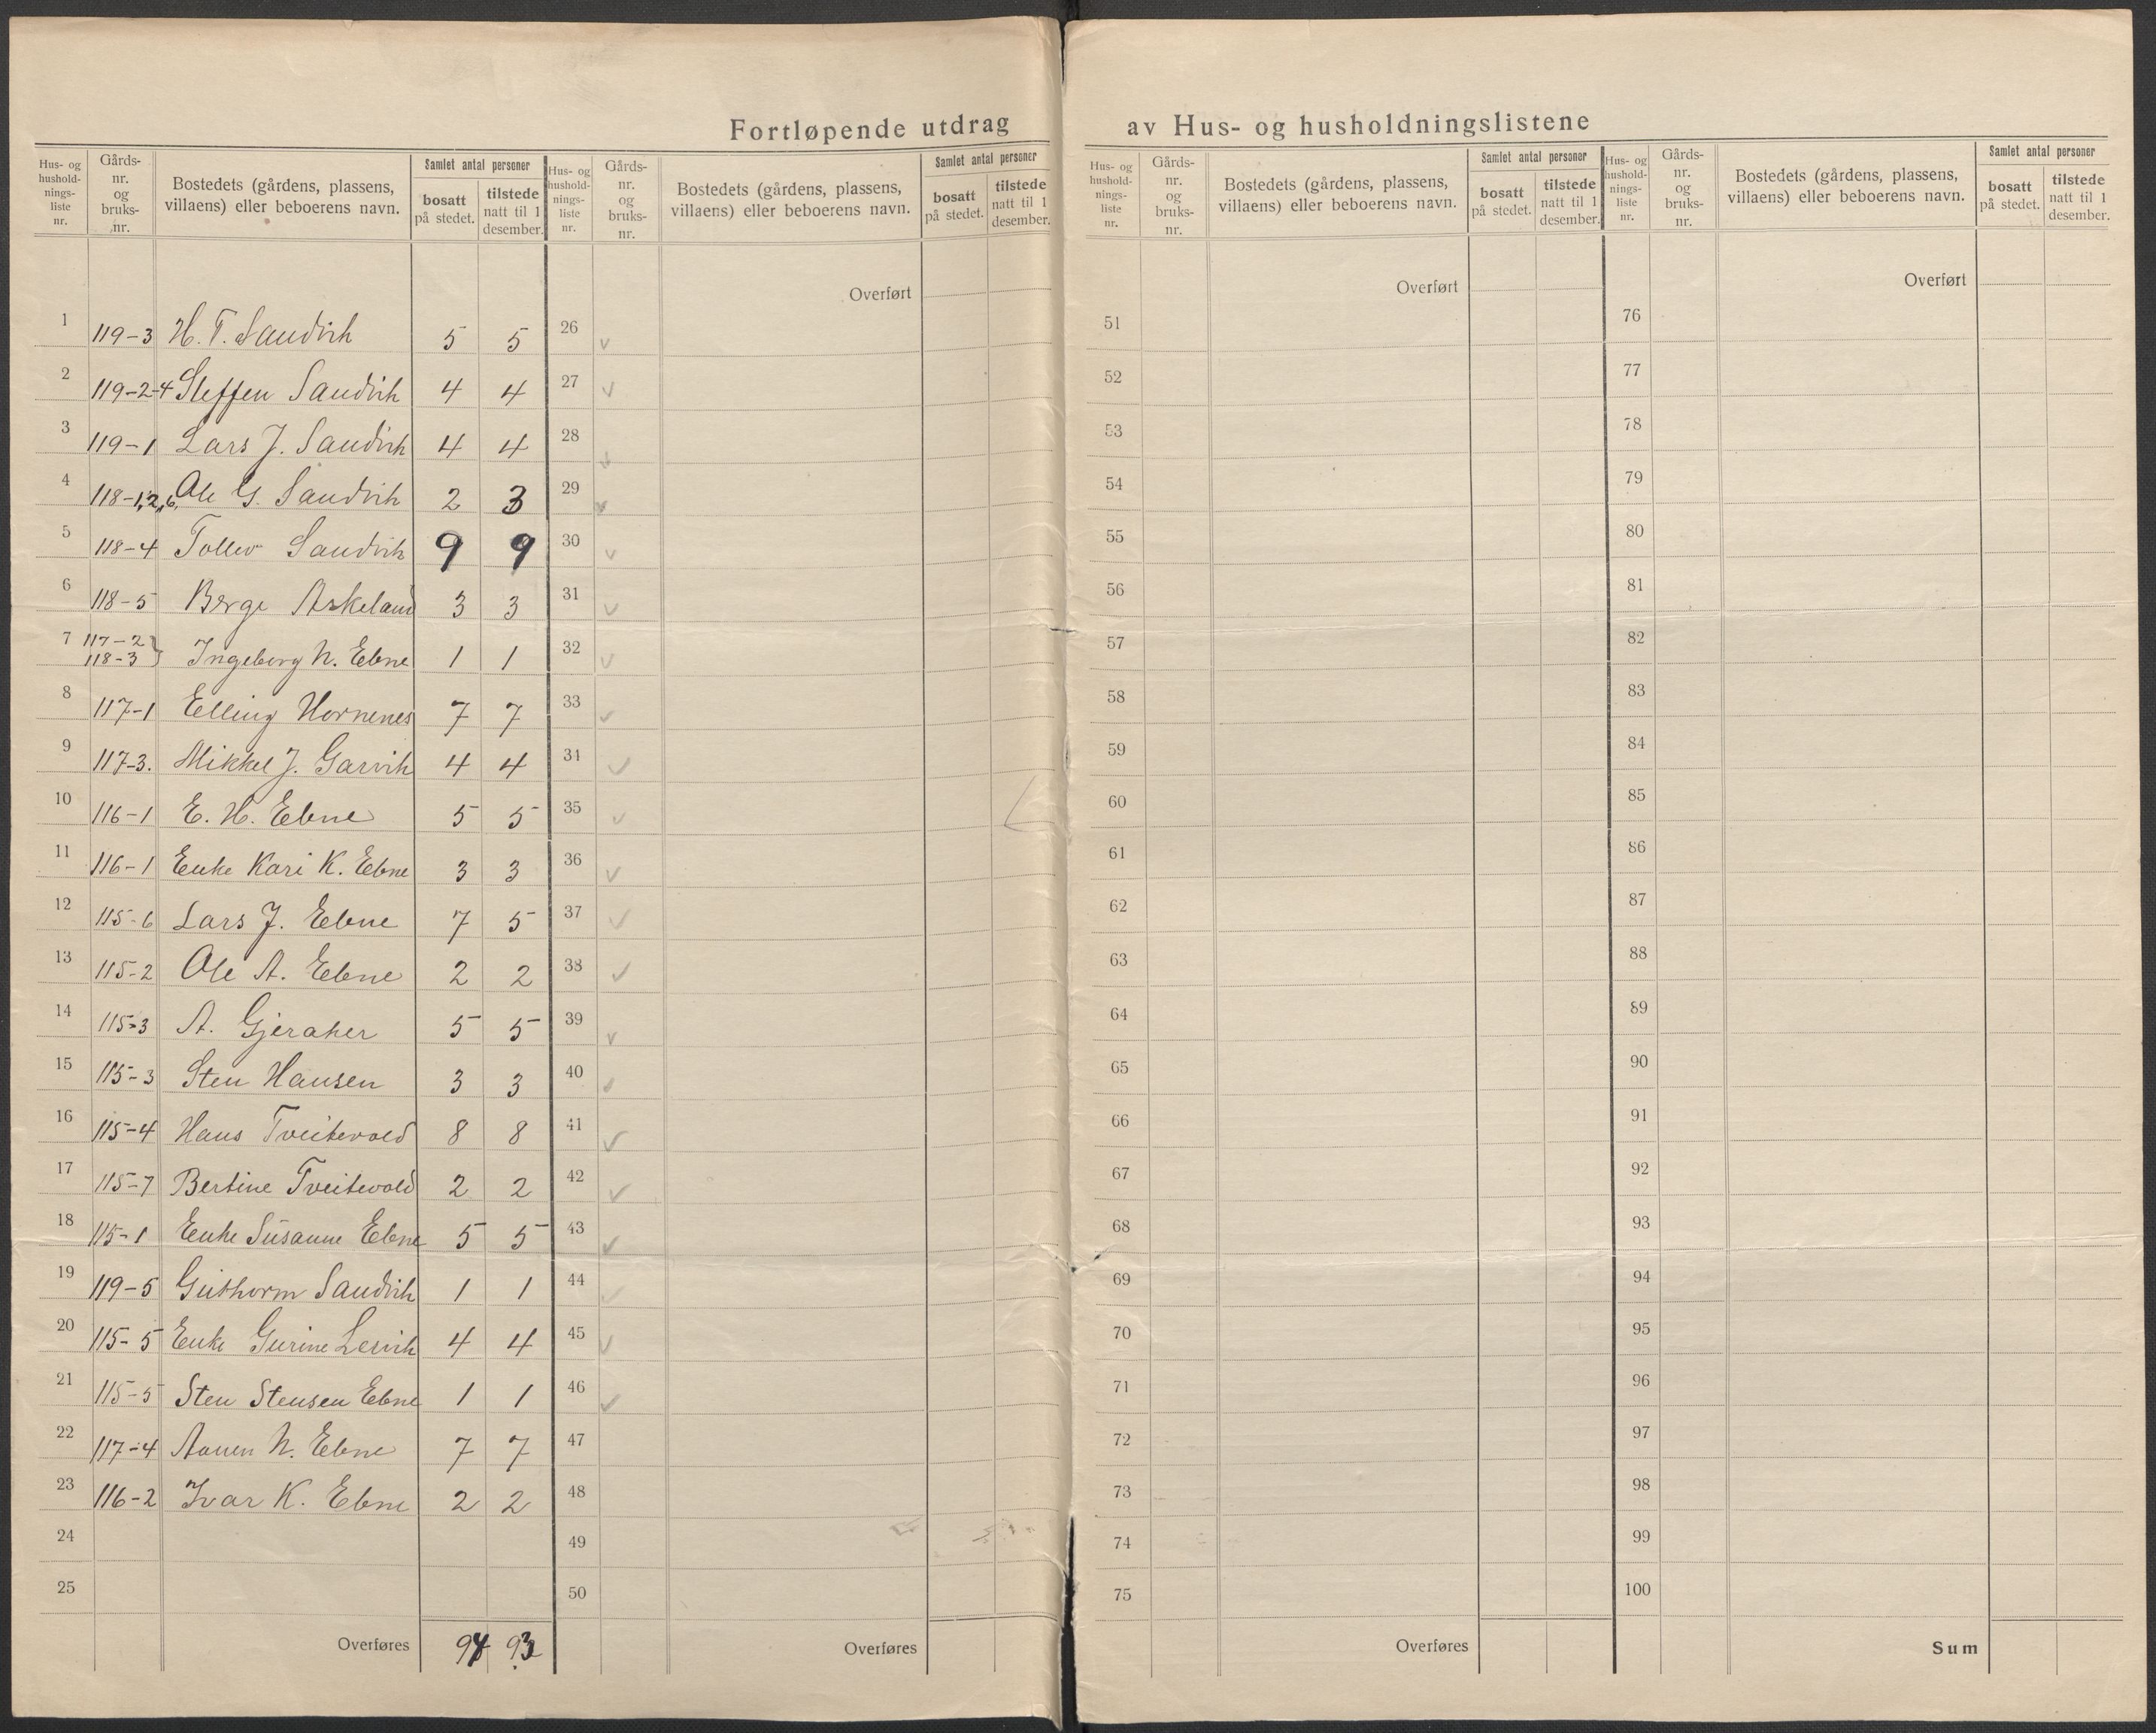 Fortløpende utdrag av Hus- og husholdningslistene
Hus- og hushold- nings- liste nr.
Gårds- nr. og bruks- nr.
Bostedets (gårdens, plassens, villaens) eller beboerens navn.
Samlet antal personer
bosatt på stedet.
tilstede natt til 1 desember.
1 119-3 H. T. Sandvik 5 5
2 119-2-4 Steffen Sandvik 4 4
3 119-1 Lars J. Sandvik 4 4
4 118-1,2,6, Ole G. Sandvik 2 3
5 118-4 Tollev Sandvik 9 9
6 118-5 Berge Askeland 3 3
7 117-2 118-3 } Ingeborg N. Ebne 1 1
8 117-1 Elling Hornenes 7 7
9 117-3. Mikkel J. Garvik 4 4
10 116-1 E. H. Ebne 5 5
11 116-1 Enke Kari K. Ebne 3 3
12 115-6 Lars J. Ebne 7 5
13 115-2 Ole A. Ebne 2 2
14 115-3 A. Gjeraker 5 5
15 115-3 Sten Hansen 3 3
16 115-4 Hans Tveitevold 8 8
17 115-7 Bertine Tveitevold 2 2
18 115-1 Enke Susanne Ebne 5 5
19 119-5 Guthorm Sandvik 1 1
20 115-5 Enke Gurine Lervik 4 4
21 115-5 Sten Stensen Ebne 1 1
22 117-4 Aanen N. Ebne 7 7
23 116-2 Ivar K. Ebne 2 2
24
25
Overføres 94 93
Hus- og hushold- nings- liste nr.
Gårds- nr. og bruks- nr.
Bostedets (gårdens, plassens, villaens) eller beboerens navn.
Samlet antal personer
bosatt på stedet.
tilstede natt til 1 desember.
Overført
26
27
28
29
30
31
32
33
34
35
36
37
38
39
40
41
42
43
44
45
46
47
48
49
50
Overføres
Hus- og hushold- nings- liste nr.
Gårds- nr. og bruks- nr.
Bostedets (gårdens, plassens, villaens) eller beboerens navn.
Samlet antal personer
bosatt på stedet.
tilstede natt til 1 desember.
Overført
51
52
53
54
55
56
57
58
59
60
61
62
63
64
65
66
67
68
69
70
71
72
73
74
75
Overføres
Hus- og hushold- nings- liste nr.
Gårds- nr. og bruks- nr.
Bostedets (gårdens, plassens, villaens) eller beboerens navn.
Samlet antal personer
bosatt på stedet.
tilstede natt til 1 desember.
Overført
76
77
78
79
80
81
82
83
84
85
86
87
88
89
90
91
92
93
94
95
96
97
98
99
100
Sum